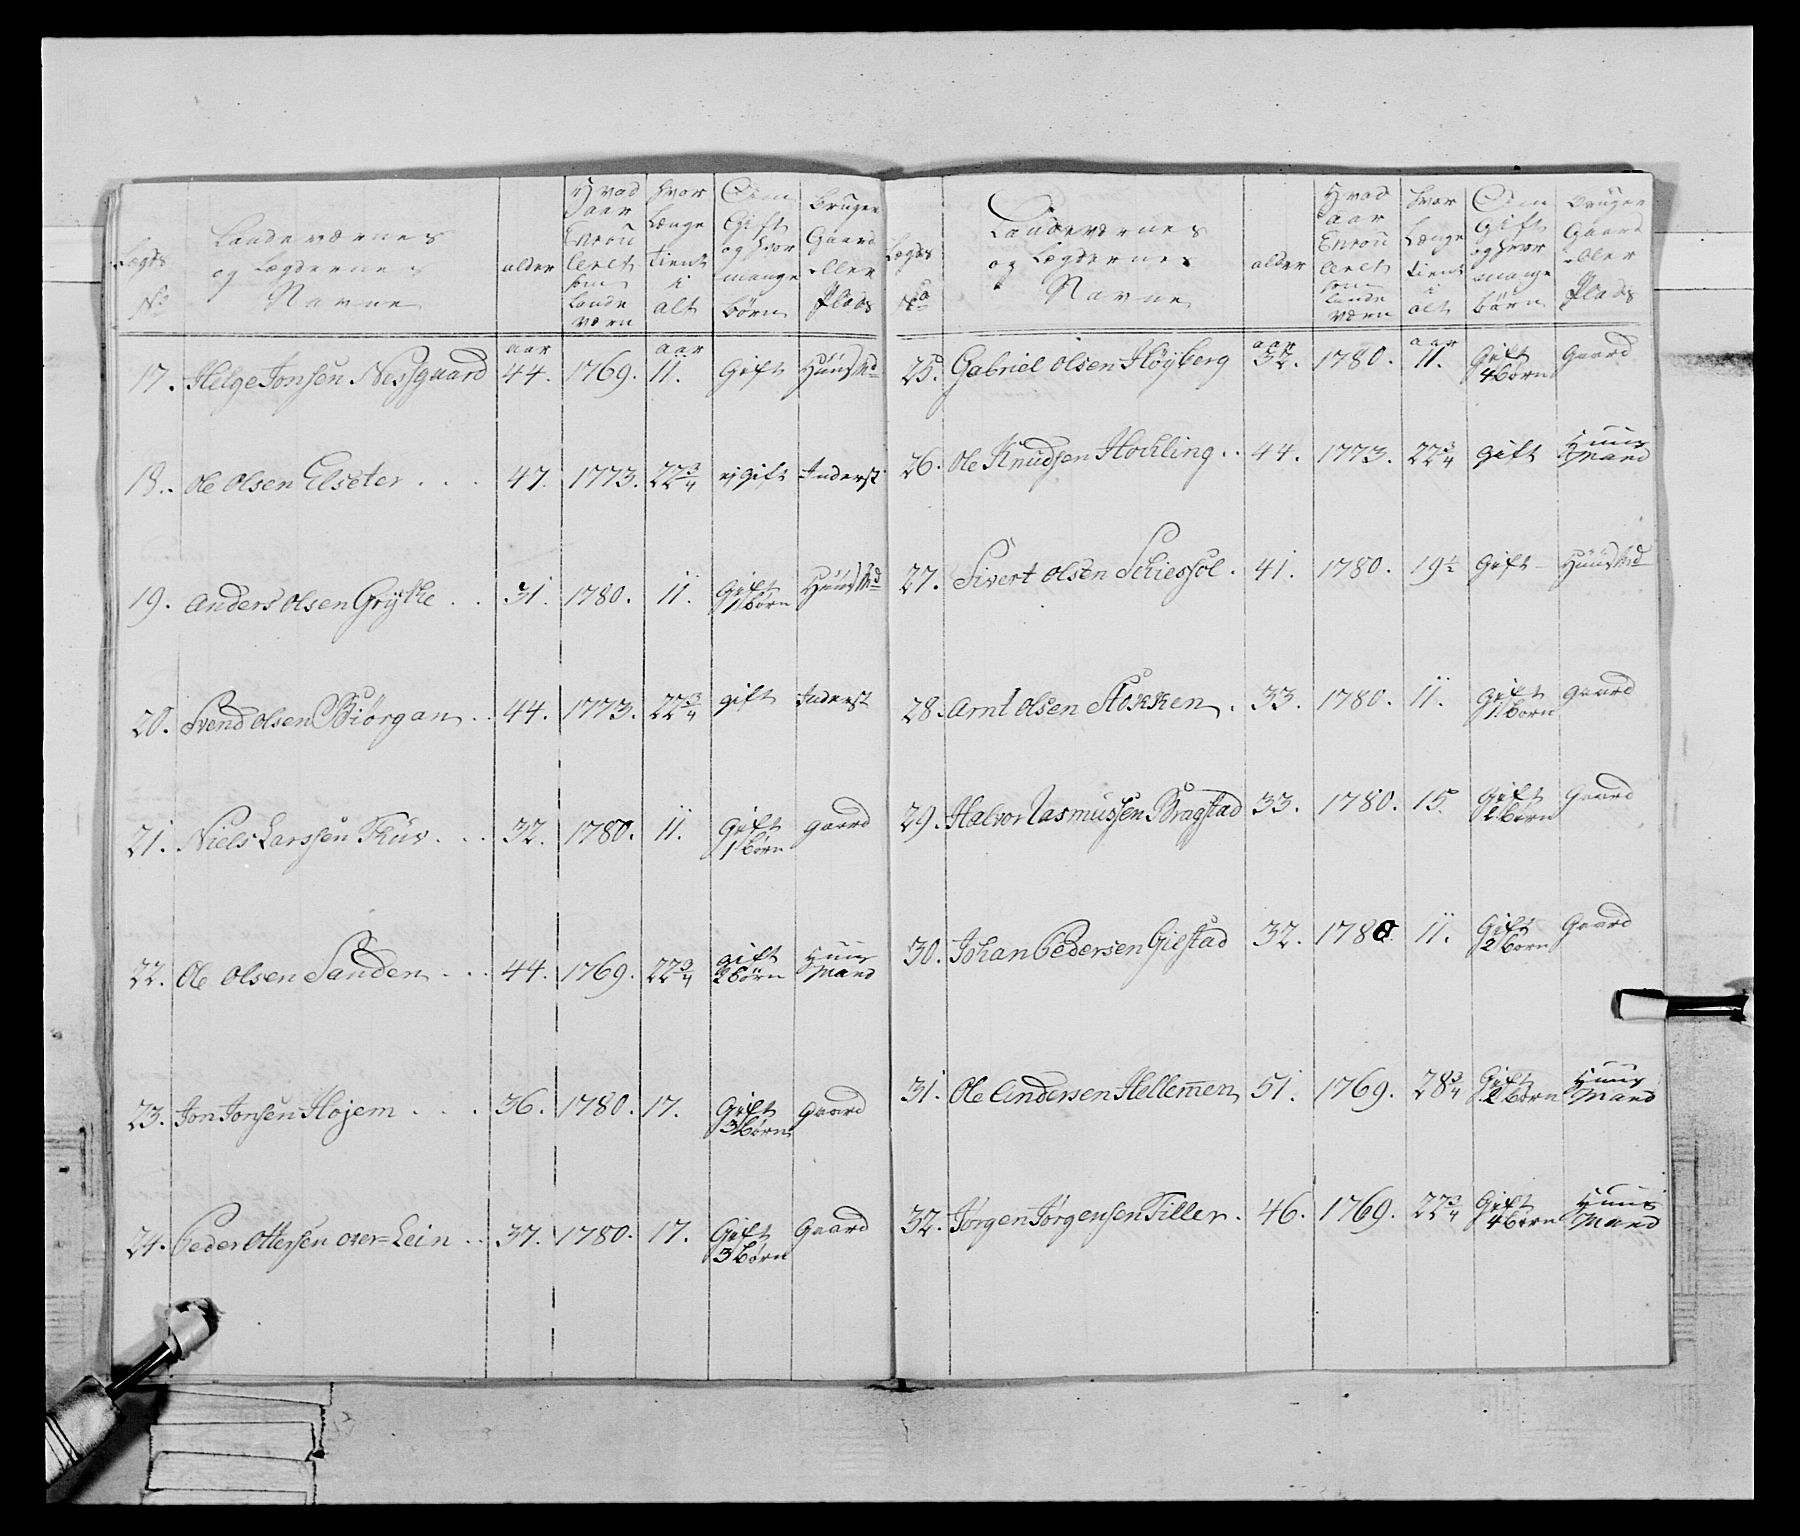 Lægds No | Landeværnes og Lægdernes Navne | alder | Hvad aar Enroulleret som Landeværn | hvor Længe tient i alt | Om Gift og hvor mange børn | bruger Gaard eller Plads
aar aar
17. Helge Jonsen Nessgaard 44. 1769. 11. Gift Huus Md
18. Ole Olsen Elseter 47. 1773. 22 3/4 ej Gift Inderst
19. Anders Olsen Grytte 31. 1780. 11. Gift 1 børn Huus Md
20. Svend Olsen Biörgan 44. 1773. 22 3/4 gift Inderst
21. Niels Larssen 32. 1780. 11. Gift 1 børn gaard
22. Ole Olsen Sanden 44. 1769. 22 3/4 gift 2 børn Huus Mand
23. Jon Jonsen Hojem 36. 1780. 17. Gift 3 børn gaard
24. Peder Ottersen over=Lein 37. 1780. 17. Gift 3 børn Gaard
Lægds No | Landeværnes og Lægdernes Navne | alder | Hvad aar Enroulleret som Landeværn | hvor Længe tient i alt | Om Gift og hvor mange børn | bruger Gaard eller Plads
aar aar
25. Gabriel Olsen Höyberg 32. 1780. 11. Gift 4 børn Gaard
26. Ole Knudsen Hockling 44. 1773. 22 3/4 gift Huus Mand
27. Sivert Olsen 41. 1780. 19 1/2 Gift Huus Md
28. Arnt Olsen Stokken 33. 1780. 11. Gift 1 born gaard
29. Halvor Rasmussen Bragstad 33. 1780. 15. Gift børn Gaard
30. Johan Pedersen Gielstad 32. 1780. 11. Gift 2 born Gaard
31. Ole Andersen Hellemen 51. 1769. 28 3/4 Gift 2 børn Huus Mand
32. Jørgen Jørgensen Tiller 46. 1769. 22 3/4 Gift 4 børn Huus Mand